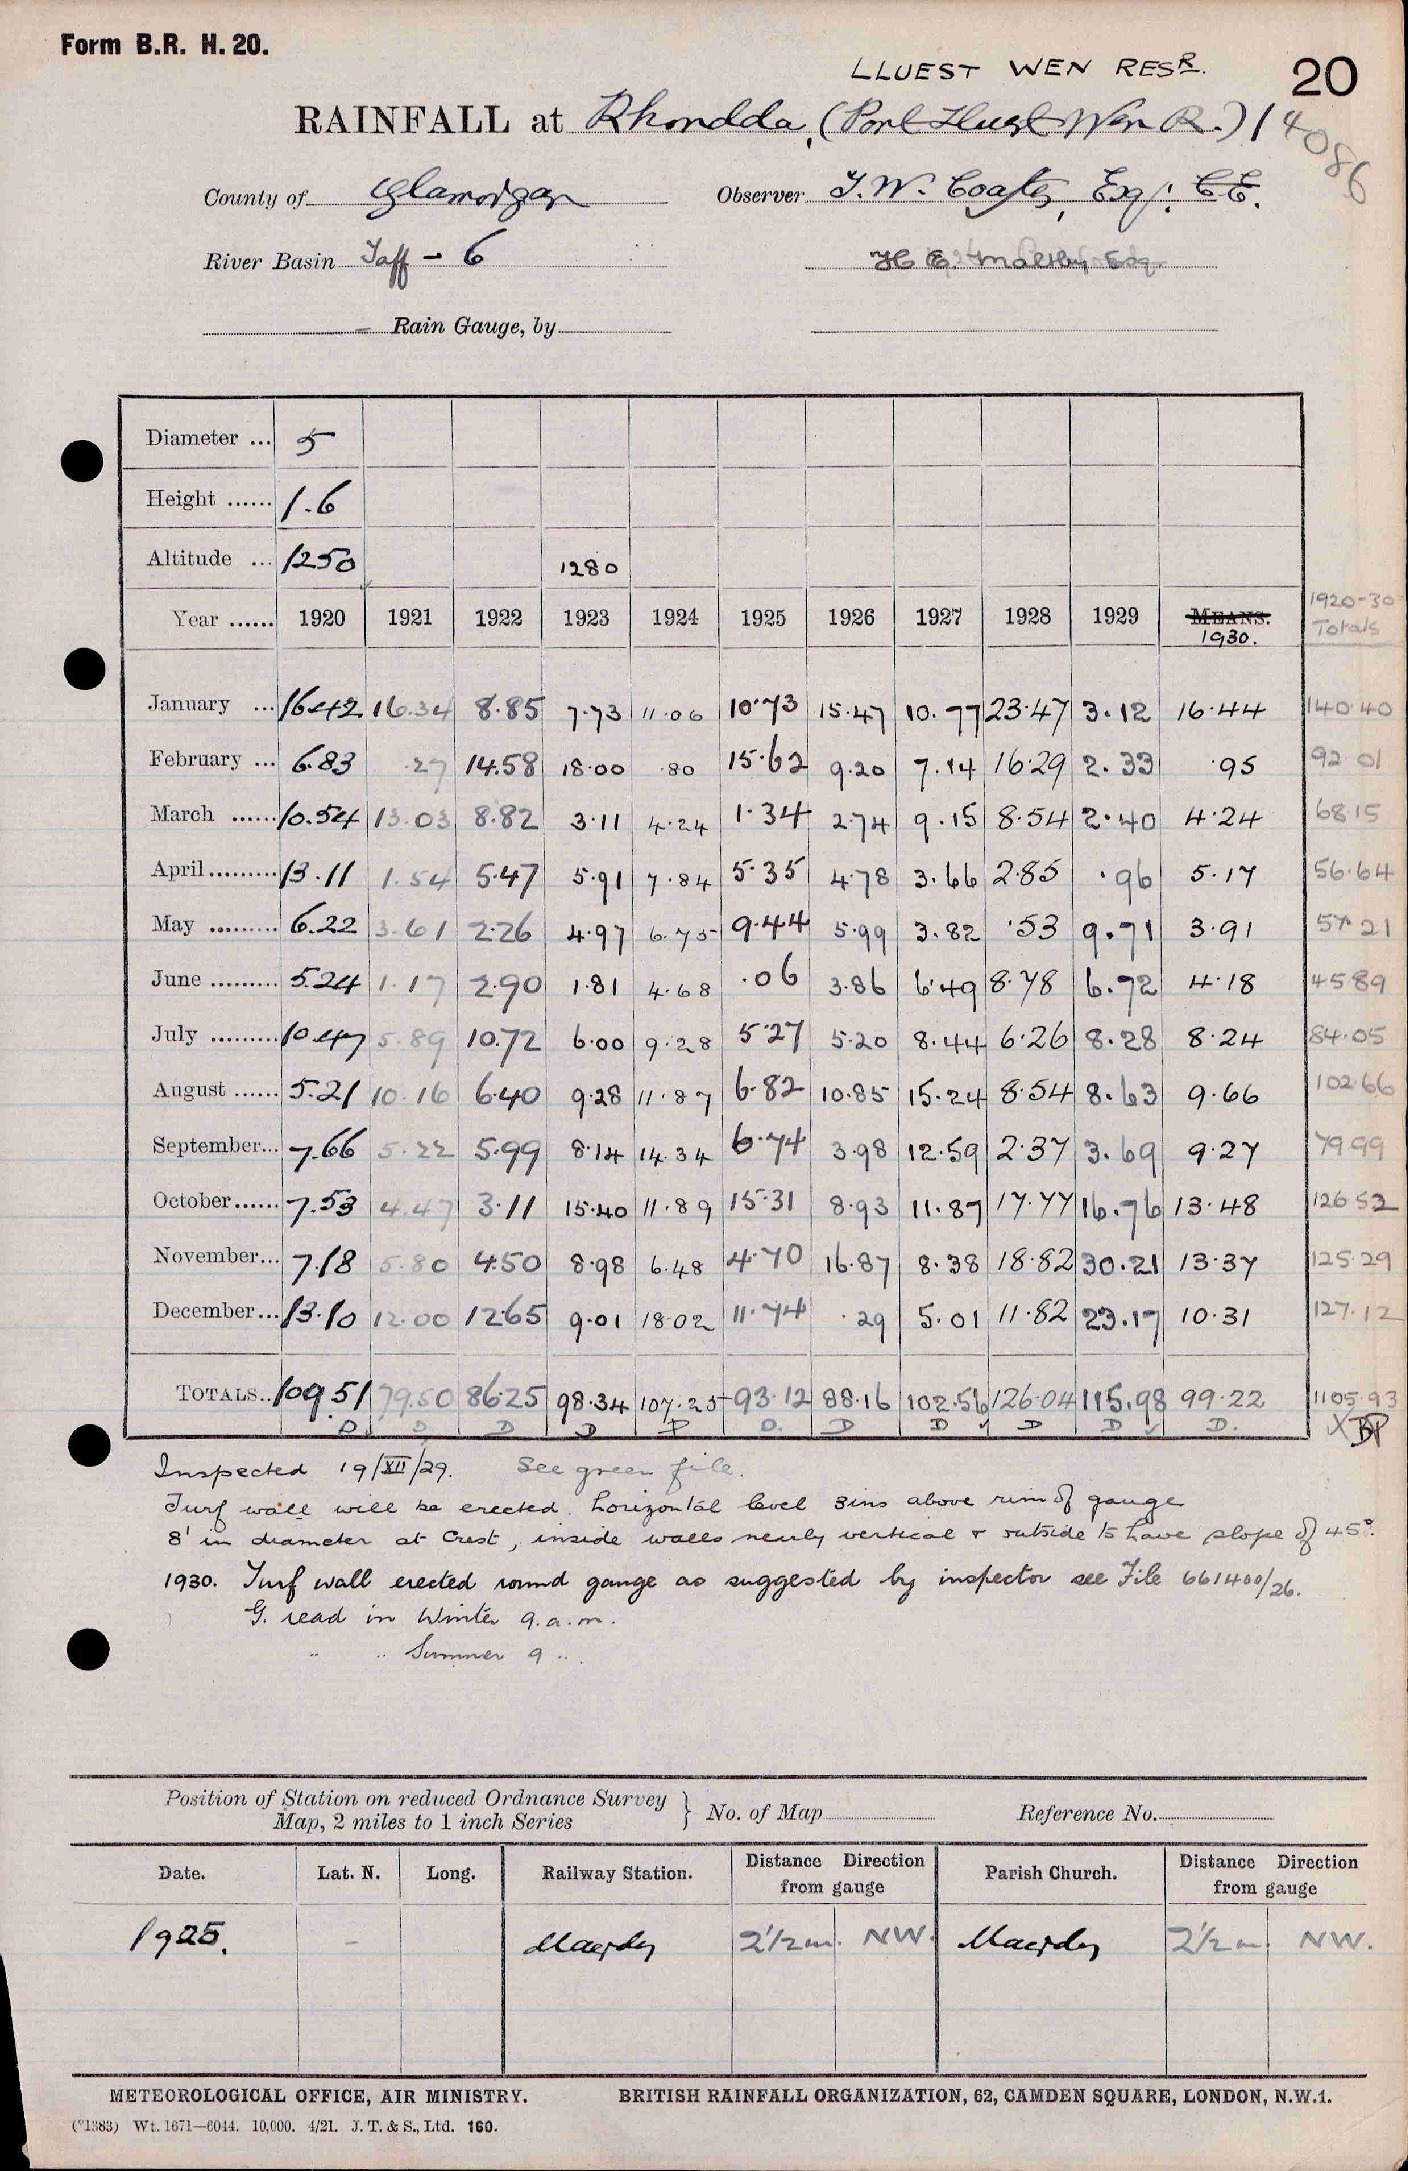 Form B.R. H. 20.
LLUEST WEN RESR.
20
RAINFALL at Rhondda, (Port Lluest Wen R.) /
4086
County of Glamorgan Observer T. W. Coates, Esq. C.E.
River Basin Taff - 6 H. E. Maltby, Esq.
Rain Gauge, by
Diameter ... 5
Height ...... 1.6
Altitude ... 1250 1280
Year ...... 1920 1921 1922 1923 1924 1925 1926 1927 1928 1929 MEANS. 1930. 1920-30 Totals
January ... 16.42 16.34 8.85 7.73 11.06 10.73 15.47 10.77 23.47 3.12 16.44 140.40
February ... 6.83 .27 14.58 18.00 .80 15.62 9.20 7.14 16.29 2.33 .95 92.01
March ...... 10.54 13.03 8.82 3.11 4.24 1.34 2.74 9.15 8.54 2.40 4.24 68.15
April......... 13.11 1.54 5.47 5.91 7.84 5.35 4.78 3.66 2.85 .96 5.17 56.64
May ......... 6.22 3.61 2.26 4.97 6.75 9.44 5.99 3.82 .53 9.71 3.91 57.21
June ......... 5.24 1.17 2.90 1.81 4.68 .06 3.86 6.49 8.78 6.72 4.18 45.89
July ......... 10.47 5.89 10.72 6.00 9.28 5.27 5.20 8.44 6.26 8.28 8.24 84.05
August ...... 5.21 10.16 6.40 9.28 11.87 6.82 10.85 15.24 8.54 8.63 9.66 102.66
September... 7.66 5.22 5.99 8.14 14.34 6.74 3.98 12.59 2.37 3.69 9.27 79.99
October...... 7.53 4.47 3.11 15.40 11.89 15.31 8.93 11.87 17.77 16.76 13.48 126.52
November... 7.18 5.80 4.50 8.98 6.48 4.70 16.87 8.38 18.82 30.21 13.37 125.29
December... 13.10 12.00 12.65 9.01 18.02 11.74 .29 5.01 11.82 23.17 10.31 127.12
TOTALS.. 109.51 79.50 86.25 98.34 107.25 93.12 88.16 102.56 126.04 115.98 99.22 1105.93
D. D. D D D D. D D ✓ D D ✓ D. X
Inspected 19/XII/29. See green file.
Turf wall will be erected, horizontal level 3ins above rim of gauge
8' in diameter at Crest, inside walls nearly vertical & outside to have slope of 45°.
1930. Turf wall erected round gauge as suggested by inspector see File 661400/26.
G. read in Winter 9.a.m.
" " Summer 9 "
Position of Station on reduced Ordnance Survey
Map, 2 miles to 1 inch Series } No. of Map Reference No.
Date. Lat. N. Long. Railway Station. Distance Direction from gauge Parish Church. Distance Direction from gauge
1925. - Maerdy 2½m. NW. Maerdy 2½m. NW.
METEOROLOGICAL OFFICE, AIR MINISTRY. BRITISH RAINFALL ORGANIZATION, 62, CAMDEN SQUARE, LONDON, N.W.1.
(*1383) Wt. 1671—6044. 10,000. 4/21. J. T. & S., Ltd. 160.